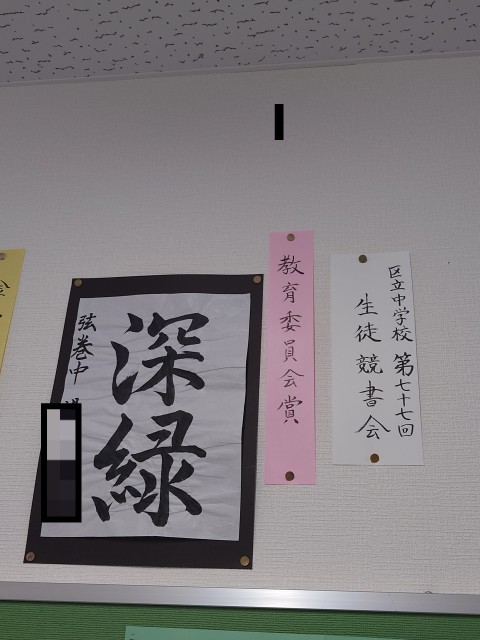 区立中学校 第七十七回
生徒競書会
教育委員会賞
深緑
弦巻中